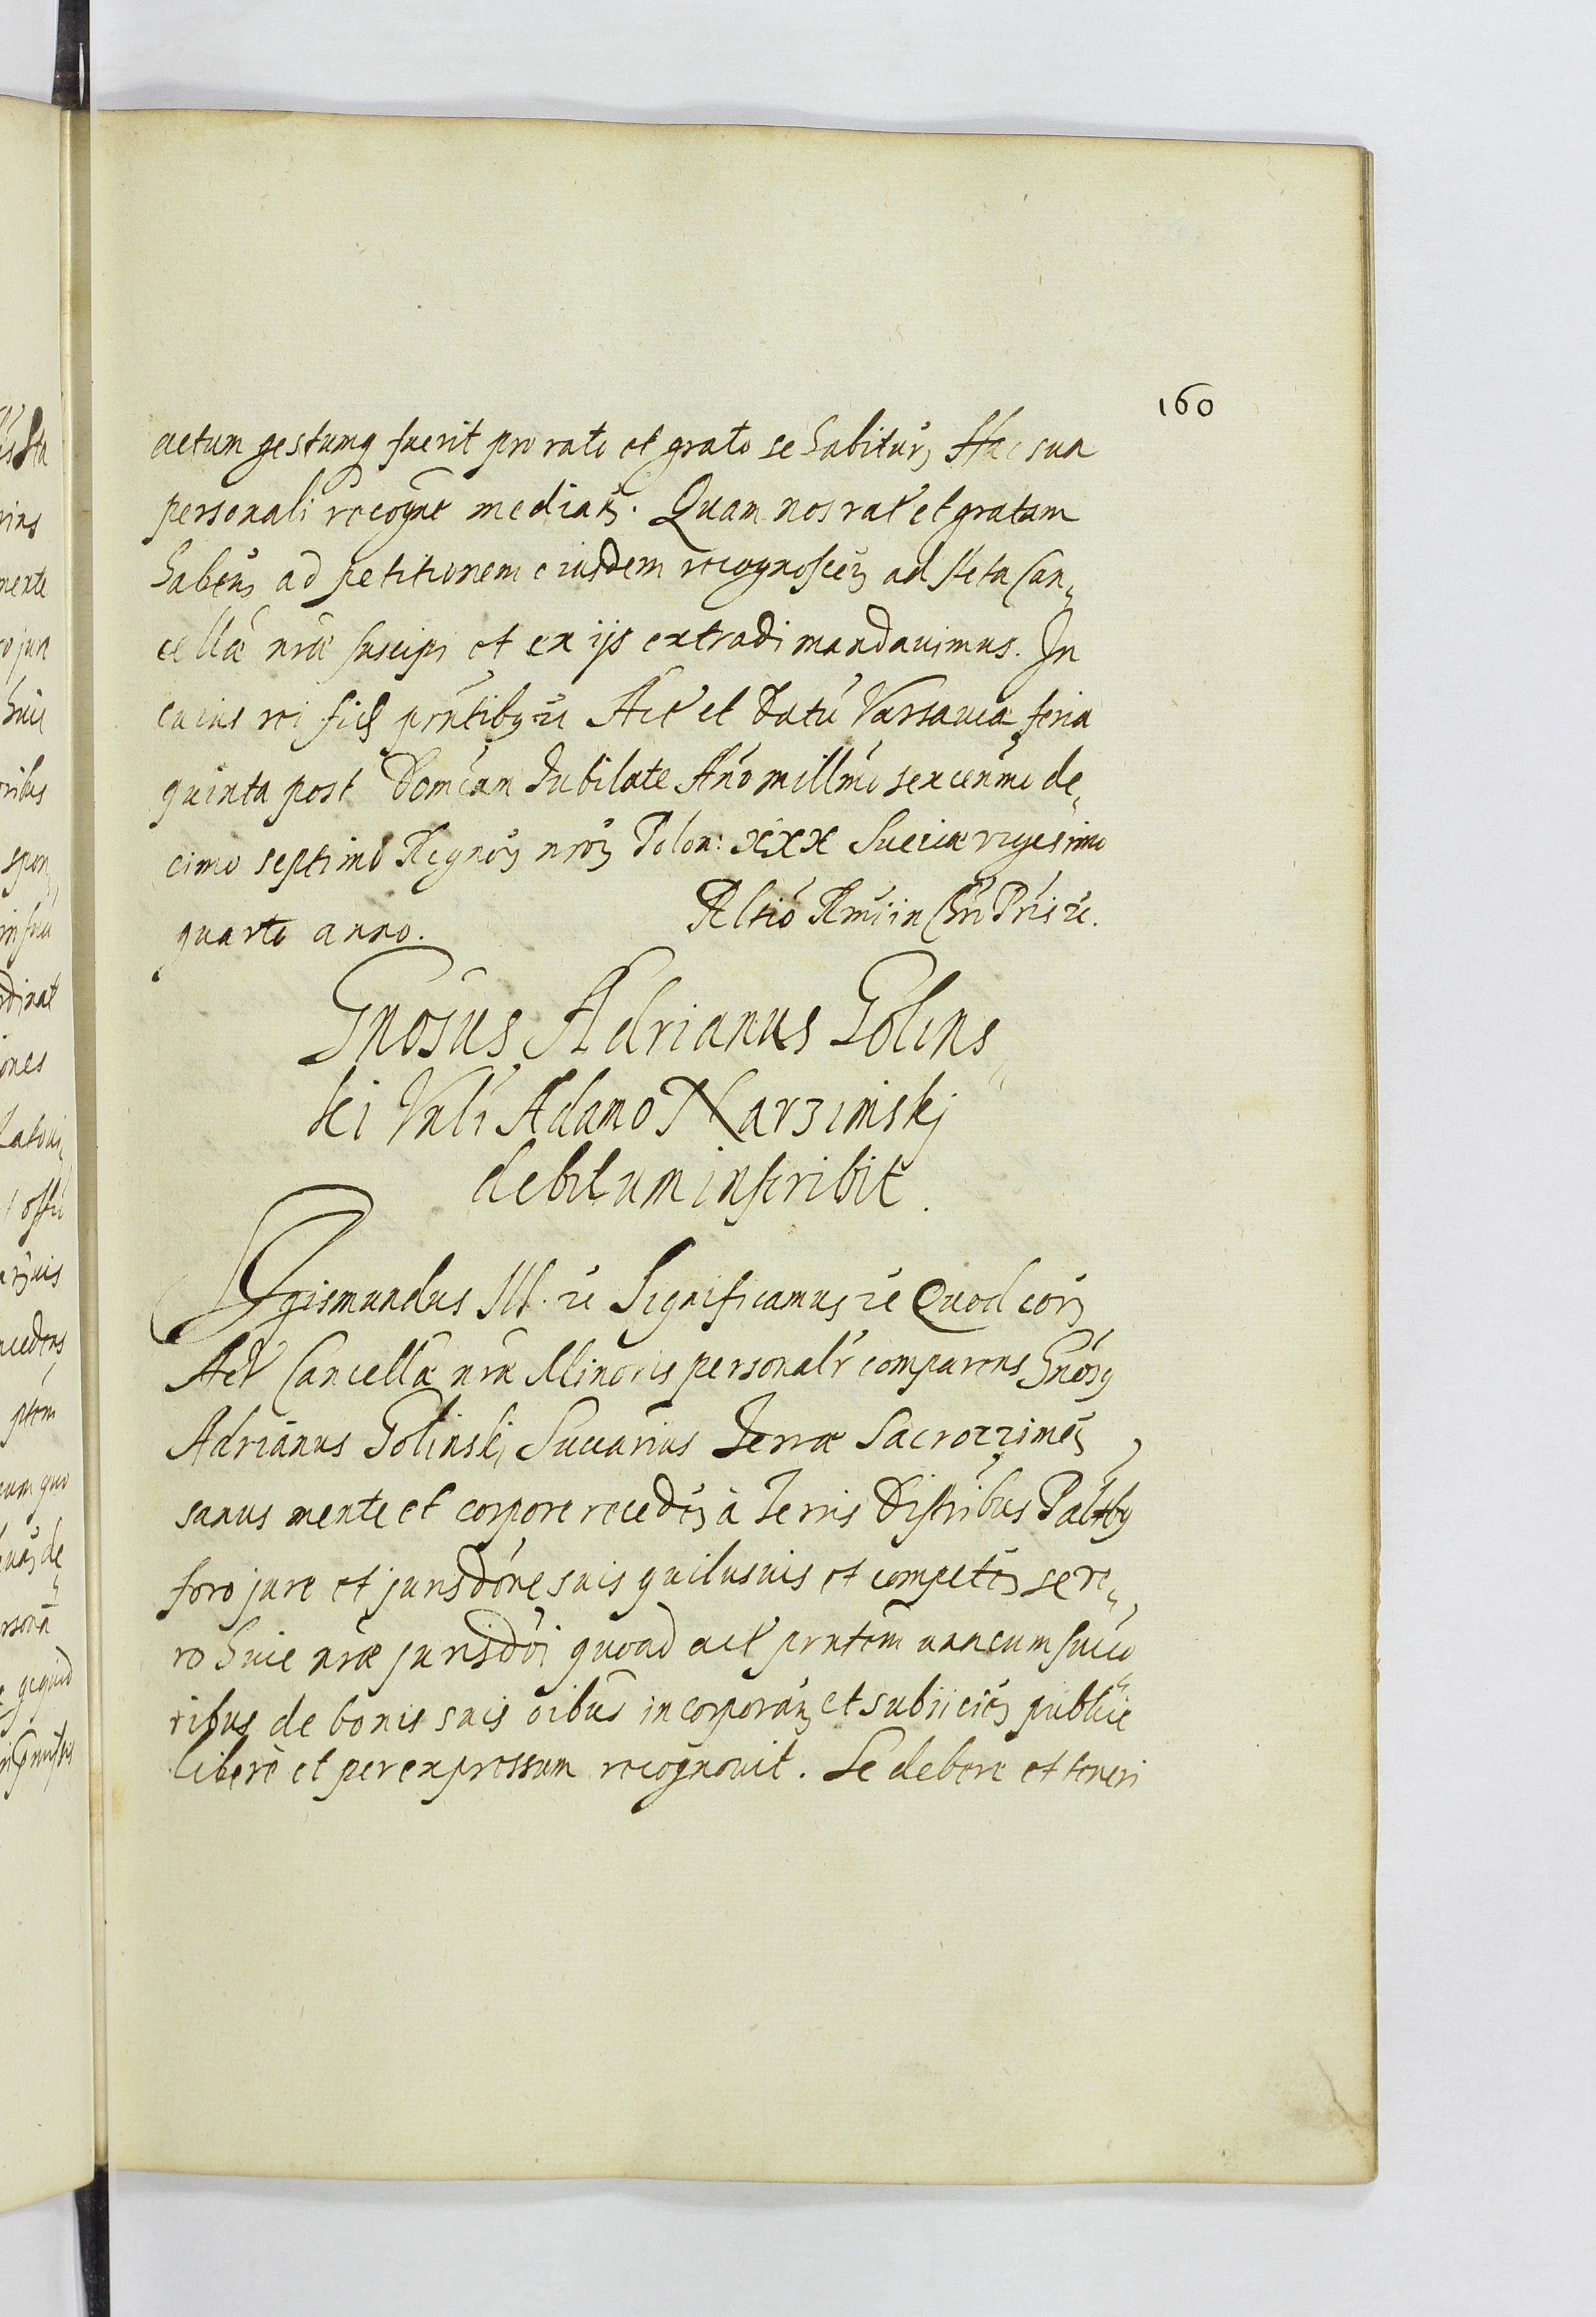 160
actum gestumq fuerit pro rato et grato se habitur, Hac sua
personali recogne mediañ. Quam nos rat et gratam
habeñ, ad petitionem eiusdem recognosceñ ad Acta Can„
cellæ nræ suscipi et ex ijs extradi mandauimus. In
cuius rei fid prntibq rc Act et Datũ Varsauiæ feria
quinta post Domcam Jubilate Año millmo sexcenmo de„
cimo septimo Regnor nror Polon: XXX Sueciæ vigesimo
quarto anno.
Relatio Rmi in Chri Pris rc.
Gnosus Adrianus Golins„
ki Vrli Adamo Narzimskj
debitum inscribit.
Sigismundus III. rc Significamus rc Quod cor,
Act Cancellæ nræ Minoris personalr comparens Gnosq
Adrianus Golinskj Succarius Terræ Sacroczimeñ,
sanus mente et corpore recedeñ à Terris Districbus Paltbq
foro jure et jurisdone suis quibusuis et competeñ se ve„
ro huic nræ jurisdoi quoad act prntem unacum succo„
ribus de bonis suis oibus incorporañ et subiicieñ publice
libere et per expressum recognouit. Se debere et teneri